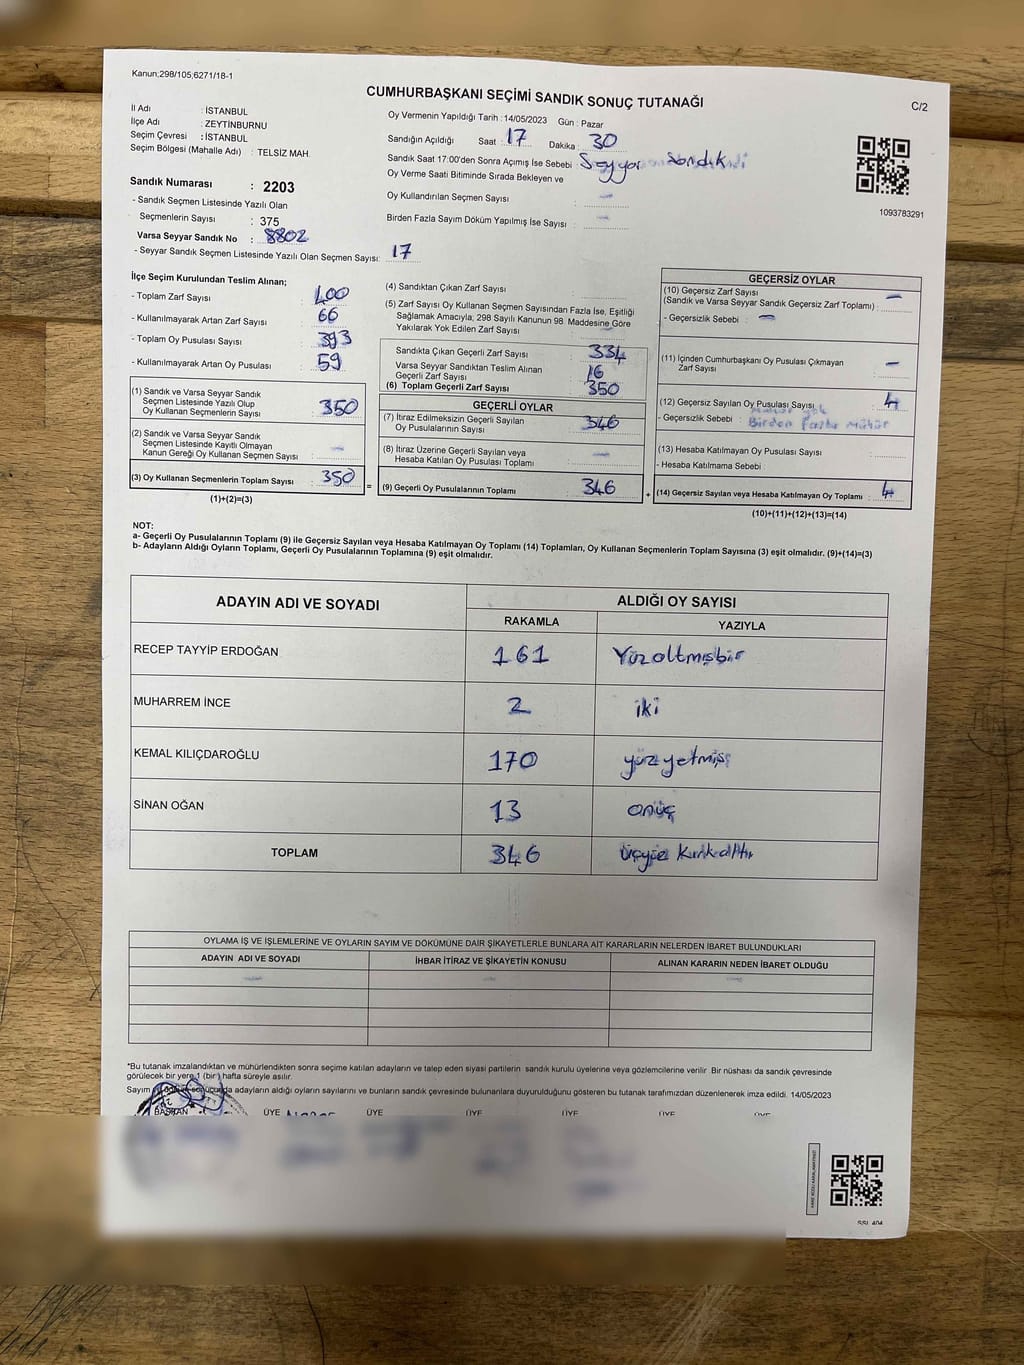 Kanun;298/105;6271/18-1
CUMHURBAŞKANI SEÇİMİ SANDIK SONUÇ TUTANAĞI
C/2
İl Adı : İSTANBUL
İlçe Adı : ZEYTİNBURNU
Seçim Çevresi : İSTANBUL
Seçim Bölgesi (Mahalle Adı) : TELSİZ MAH.
Oy Vermenin Yapıldığı Tarih : 14/05/2023 Gün : Pazar
Sandığın Açıldığı Saat : 17 Dakika : 30
Sandık Saat 17:00'den Sonra Açımış İse Sebebi : Seyyar Sandık
Oy Verme Saati Bitiminde Sırada Bekleyen ve
Oy Kullandırılan Seçmen Sayısı : —
Birden Fazla Sayım Döküm Yapılmış İse Sayısı : —
1093783291
Sandık Numarası : 2203
- Sandık Seçmen Listesinde Yazılı Olan
Seçmenlerin Sayısı : 375
Varsa Seyyar Sandık No : 8802
- Seyyar Sandık Seçmen Listesinde Yazılı Olan Seçmen Sayısı: 17
İlçe Seçim Kurulundan Teslim Alınan;
- Toplam Zarf Sayısı : 400
- Kullanılmayarak Artan Zarf Sayısı : 66
- Toplam Oy Pusulası Sayısı : 393
- Kullanılmayarak Artan Oy Pusulası : 59
(1) Sandık ve Varsa Seyyar Sandık
Seçmen Listesinde Yazılı Olup
Oy Kullanan Seçmenlerin Sayısı : 350
(2) Sandık ve Varsa Seyyar Sandık
Seçmen Listesinde Kayıtlı Olmayan
Kanun Gereği Oy Kullanan Seçmen Sayısı : —
(3) Oy Kullanan Seçmenlerin Toplam Sayısı : 350
(1)+(2)=(3)
=
(4) Sandıktan Çıkan Zarf Sayısı :
(5) Zarf Sayısı Oy Kullanan Seçmen Sayısından Fazla İse, Eşitliği
Sağlamak Amacıyla; 298 Sayılı Kanunun 98 Maddesine Göre
Yakılarak Yok Edilen Zarf Sayısı : —
Sandıkta Çıkan Geçerli Zarf Sayısı : 334
Varsa Seyyar Sandıktan Teslim Alınan
Geçerli Zarf Sayısı : 16
(6) Toplam Geçerli Zarf Sayısı : 350
GEÇERLİ OYLAR
(7) İtiraz Edilmeksizin Geçerli Sayılan
Oy Pusulalarının Sayısı : 346
(8) İtiraz Üzerine Geçerli Sayılan veya
Hesaba Katılan Oy Pusulası Toplamı : —
(9) Geçerli Oy Pusulalarının Toplamı : 346
+
GEÇERSİZ OYLAR
(10) Geçersiz Zarf Sayısı
(Sandık ve Varsa Seyyar Sandık Geçersiz Zarf Toplamı) : —
- Geçersizlik Sebebi : —
(11) İçinden Cumhurbaşkanı Oy Pusulası Çıkmayan
Zarf Sayısı : —
(12) Geçersiz Sayılan Oy Pusulası Sayısı : 4
- Geçersizlik Sebebi : Mühür yok
Birden Fazla Mühür
(13) Hesaba Katılmayan Oy Pusulası Sayısı :
- Hesaba Katılmama Sebebi :
(14) Geçersiz Sayılan veya Hesaba Katılmayan Oy Toplamı : 4
(10)+(11)+(12)+(13)=(14)
NOT:
a- Geçerli Oy Pusulalarının Toplamı (9) ile Geçersiz Sayılan veya Hesaba Katılmayan Oy Toplamı (14) Toplamları, Oy Kullanan Seçmenlerin Toplam Sayısına (3) eşit olmalıdır. (9)+(14)=(3)
b- Adayların Aldığı Oyların Toplamı, Geçerli Oy Pusulalarının Toplamına (9) eşit olmalıdır.
ADAYIN ADI VE SOYADI
ALDIĞI OY SAYISI
RAKAMLA YAZIYLA
RECEP TAYYİP ERDOĞAN 161 Yüzaltmışbir
MUHARREM İNCE 2 iki
KEMAL KILIÇDAROĞLU 170 yüzyetmiş
SİNAN OĞAN 13 onüç
TOPLAM 346 üçyüz kırkaltı
OYLAMA İŞ VE İŞLEMLERİNE VE OYLARIN SAYIM VE DÖKÜMÜNE DAİR ŞİKAYETLERLE BUNLARA AİT KARARLARIN NELERDEN İBARET BULUNDUKLARI
ADAYIN ADI VE SOYADI İHBAR İTİRAZ VE ŞİKAYETİN KONUSU ALINAN KARARIN NEDEN İBARET OLDUĞU
— — —
*Bu tutanak imzalandıktan ve mühürlendikten sonra seçime katılan adayların ve talep eden siyasi partilerin sandık kurulu üyelerine veya gözlemcilerine verilir. Bir nüshası da sandık çevresinde
görülecek bir yere 1 (bir) hafta süreyle asılır.
Sayım adayların aldığı oyların sayılarını ve bunların sandık çevresinde bulunanlara duyurulduğunu gösteren bu tutanak tarafımızdan düzenlenerek imza edildi. 14/05/2023
BAŞKAN ÜYE ÜYE ÜYE ÜYE ÜYE ÜYE